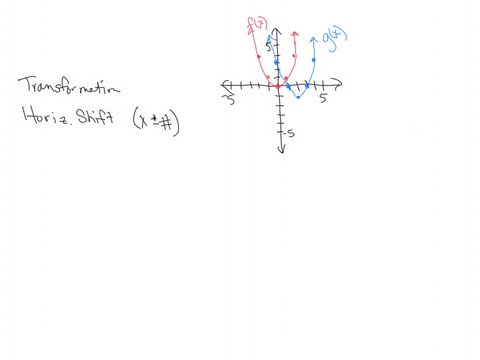 f(x)
g(x)
5
-5 5
-5
Transformation
Horiz. Shift (x ± #)